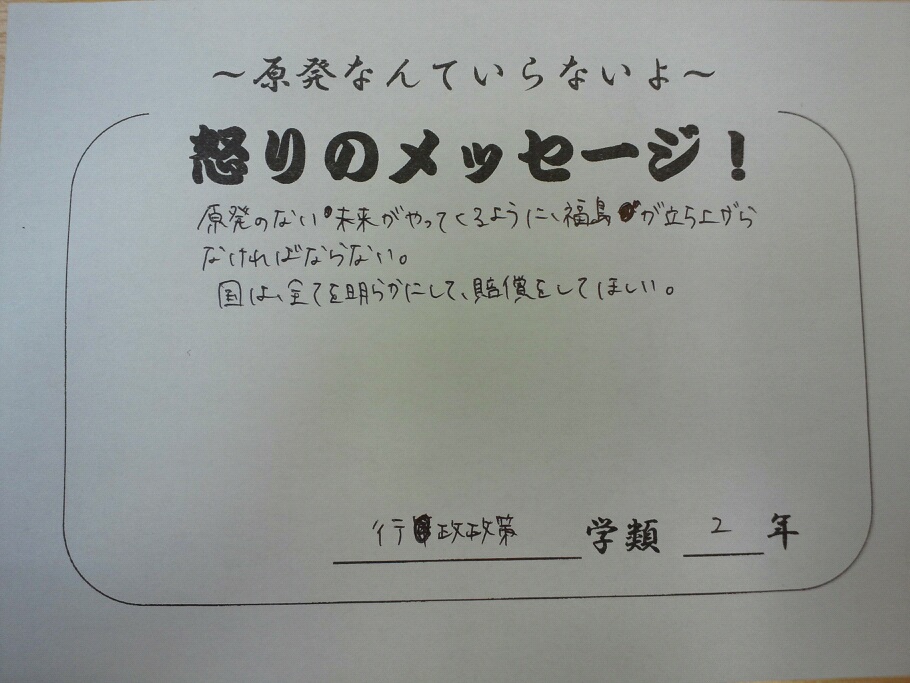 ～原発なんていらないよ～
怒りのメッセージ！
原発のない未来がやってくるように、福島が立ち上がら
なければならない。
国は、全てを明らかにして、賠償をしてほしい。
行政政策学類 2年